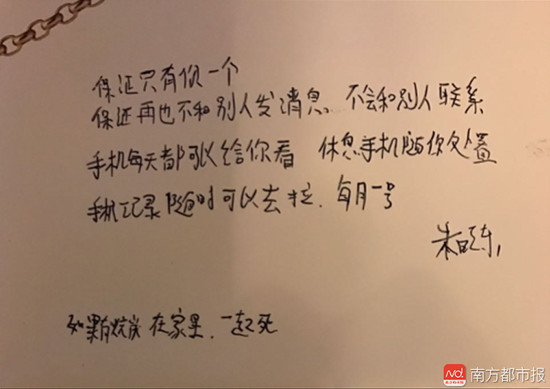 保证只有你一个
保证再也不和别人发消息 不会和别人联系
手机每天都可以给你看 休息手机随你处置
手机记录随时可以去拉.每月一号
朱晓东,
如果有 在家里.一起死
南方都市报